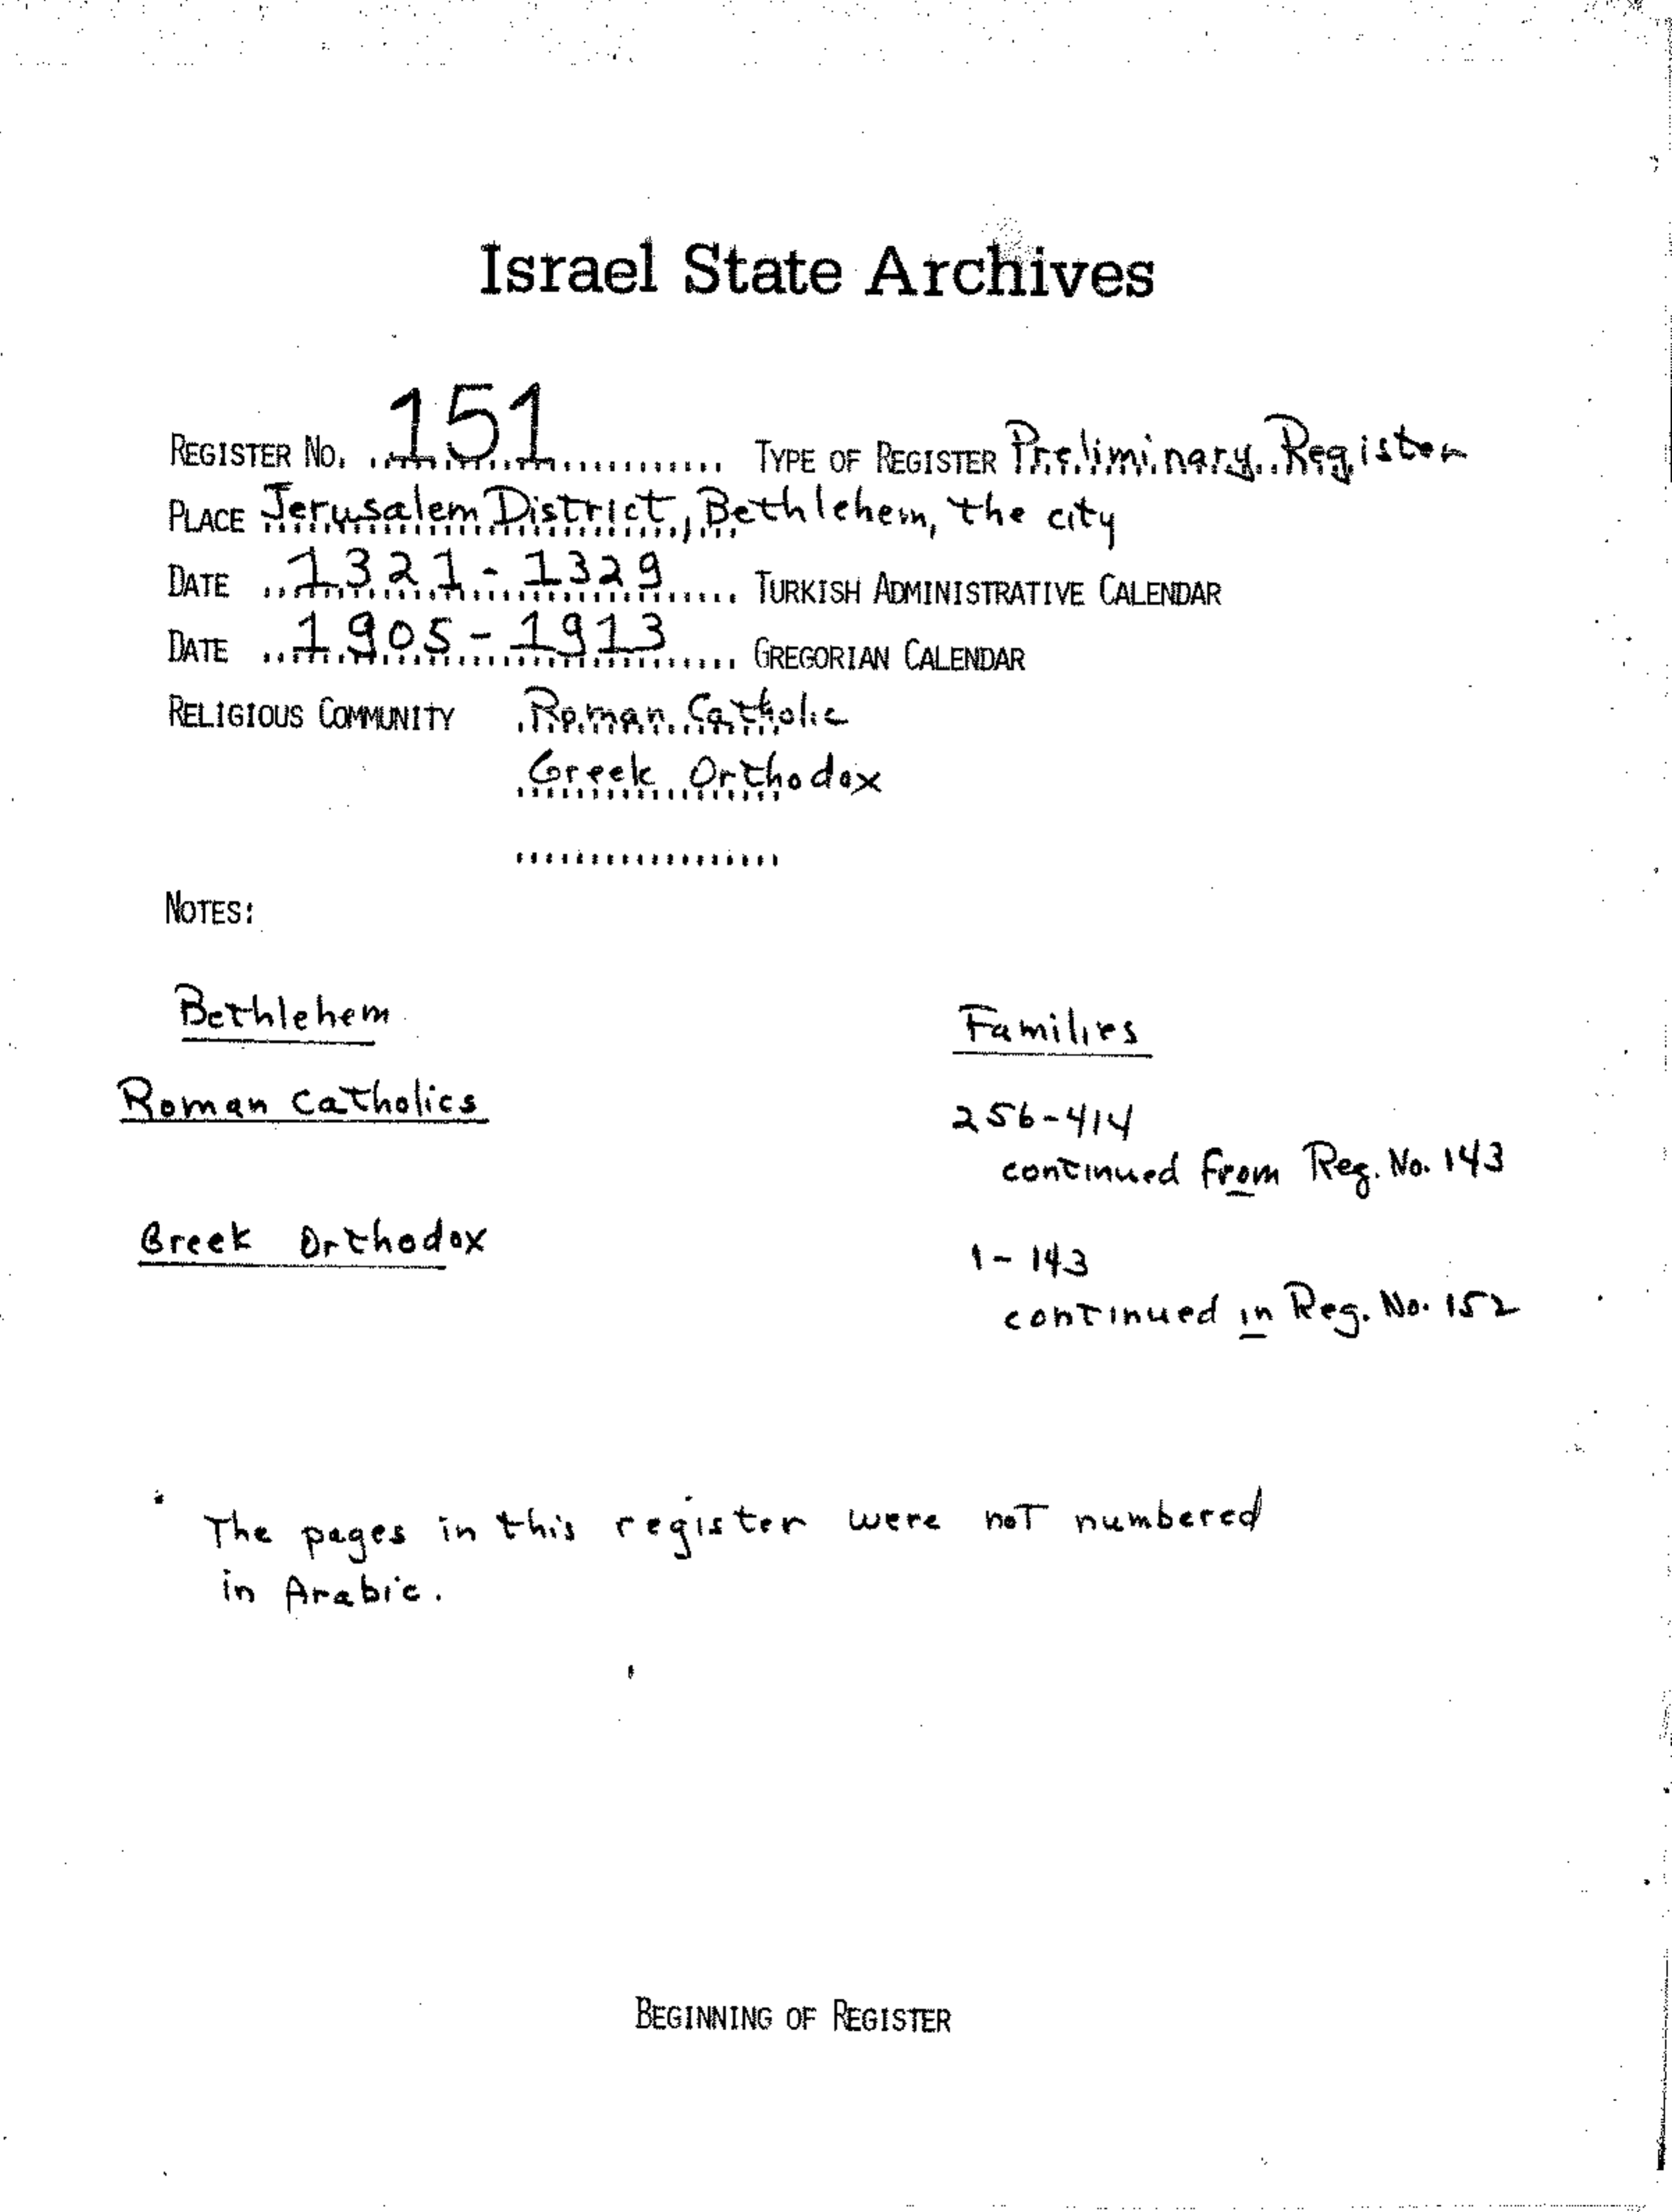 Israel State Archives
REGISTER NO. 151 TYPE OF REGISTER Preliminary Register
PLACE Jerusalem District, Bethlehem, the city
DATE 1321-1329 TURKISH ADMINISTRATIVE CALENDAR
DATE 1905-1913 GREGORIAN CALENDAR
RELIGIOUS COMMUNITY Roman Catholic
Greek Orthodox
NOTES:
Bethlehem Families
Roman Catholics 256-414
continued from Reg. No. 143
Greek Orthodox 1-143
continued in Reg. No. 152
The pages in this register were not numbered
in Arabic.
BEGINNING OF REGISTER